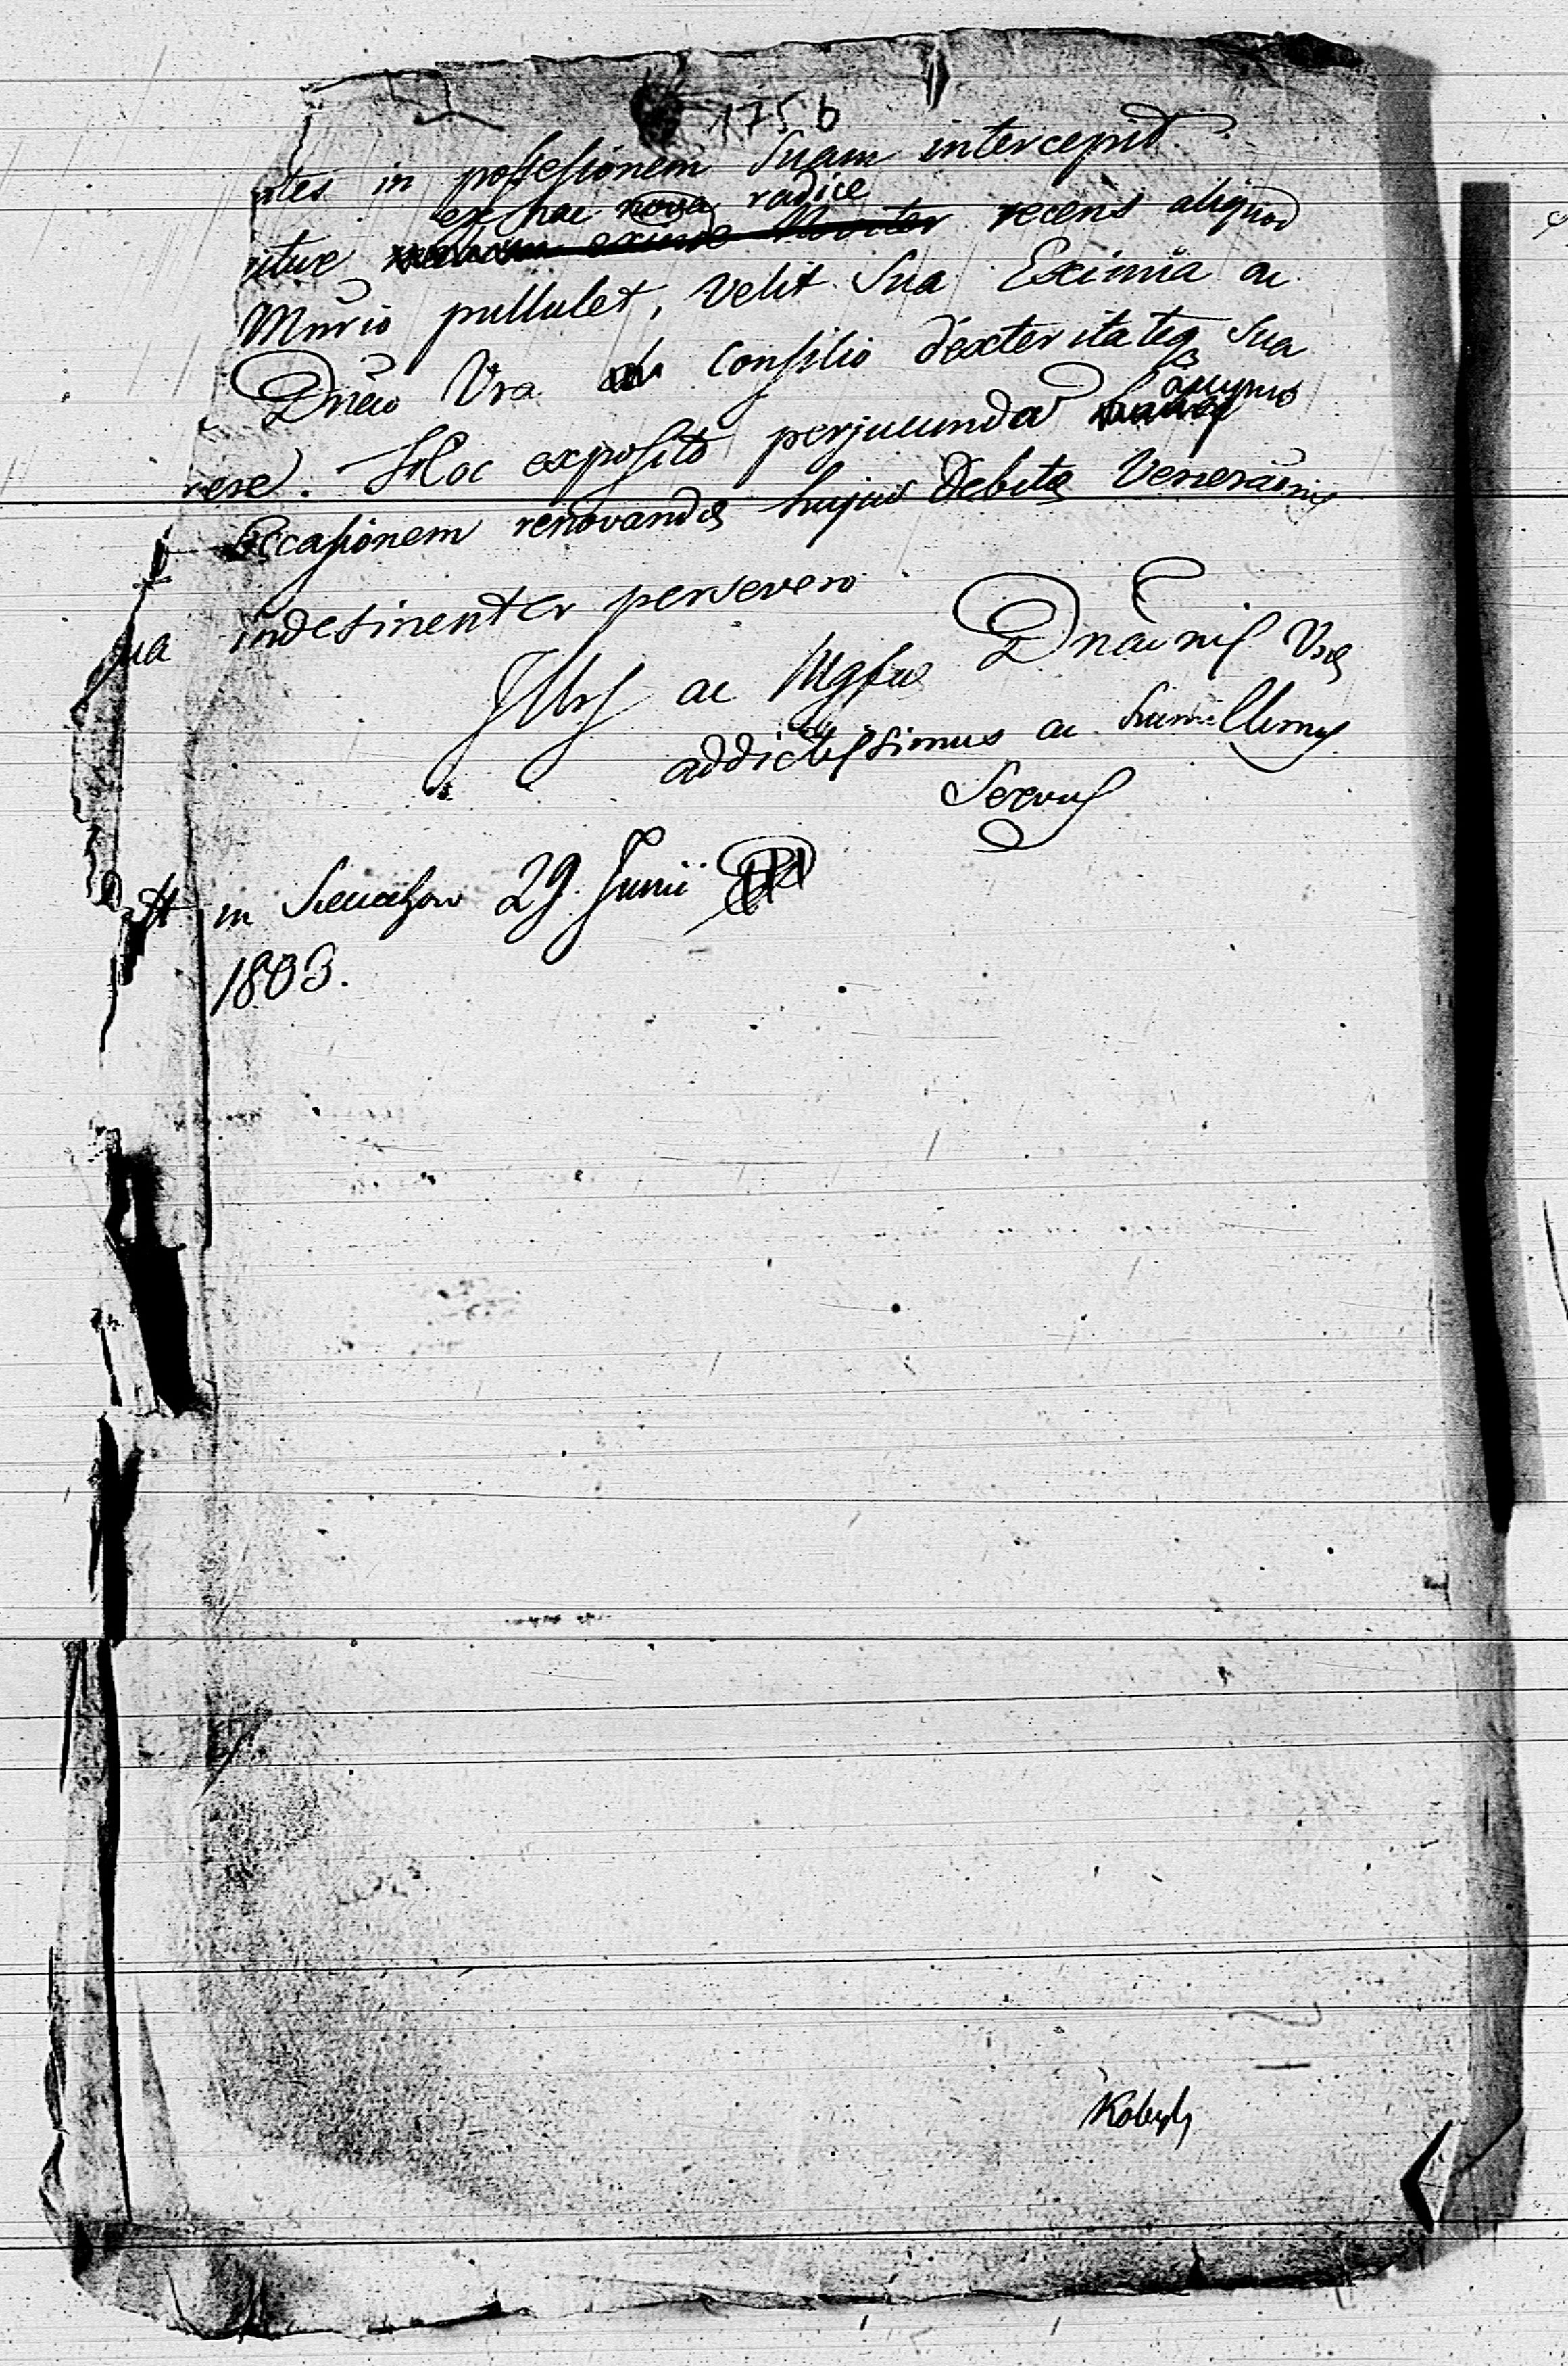 175 b
ntes in possessionem Suam intercepit.
ex hac nova radice
recens aliquod
pullulet, Velit Sua Eximia ac
Dnẽo Vra Consilio dexteritateq Sua
assumo
rere. Hoc exposito perjucunda
Occasionem renovandæ hujus Debitæ Veneraõnis
ua indesinenter persevero
Illrs ac Mgfcæ Dnaõnis Vræ
addictissimus ac humillimus
Servus
tt in 29. Junii
1803.